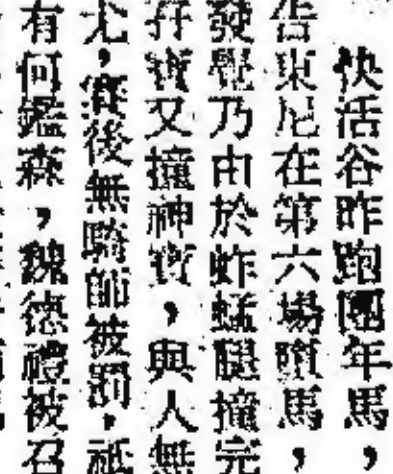 快活谷昨跑團年馬，
告東尼在第六場墮馬，
發覺乃由於蚱蜢腿撞完
孖寶又撞神寶，與人無
尤，賽後無騎師被罰，祗
有何鑑森，魏德禮被召